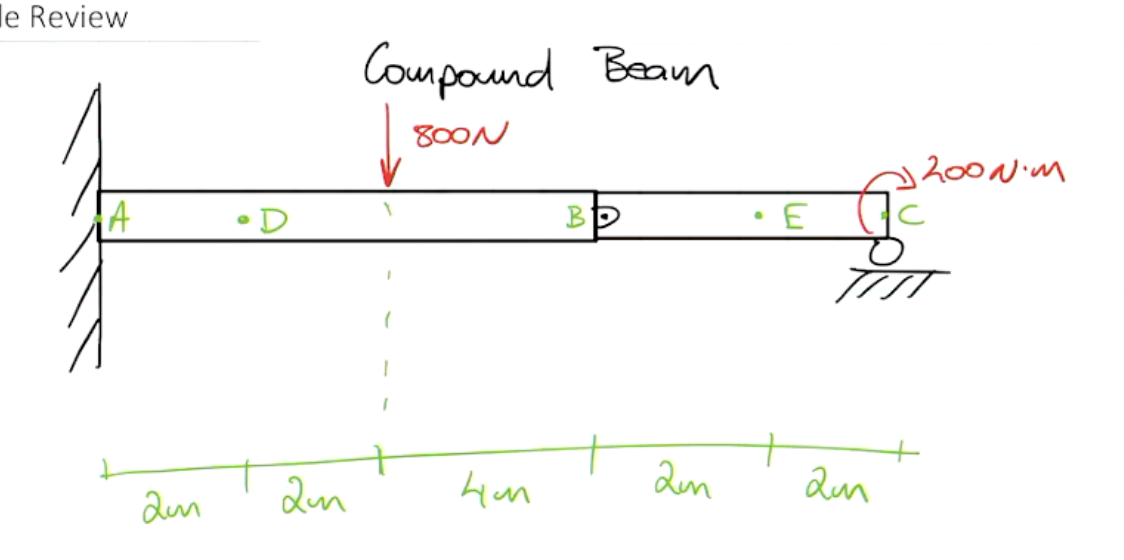 le Review
Compound Beam
800N
200N·m
A D B E C
2m 2m 4m 2m 2m